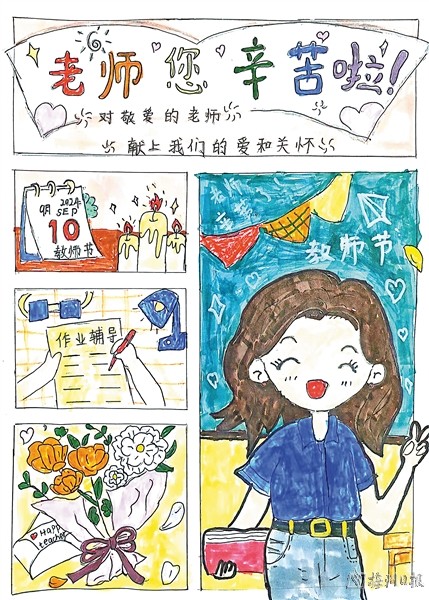 老师您辛苦啦!
对敬爱的老师
献上我们的爱和关怀
2024
9月 SEP
10
教师节
教师节
作业辅导
Happy
teacher
梅州日报